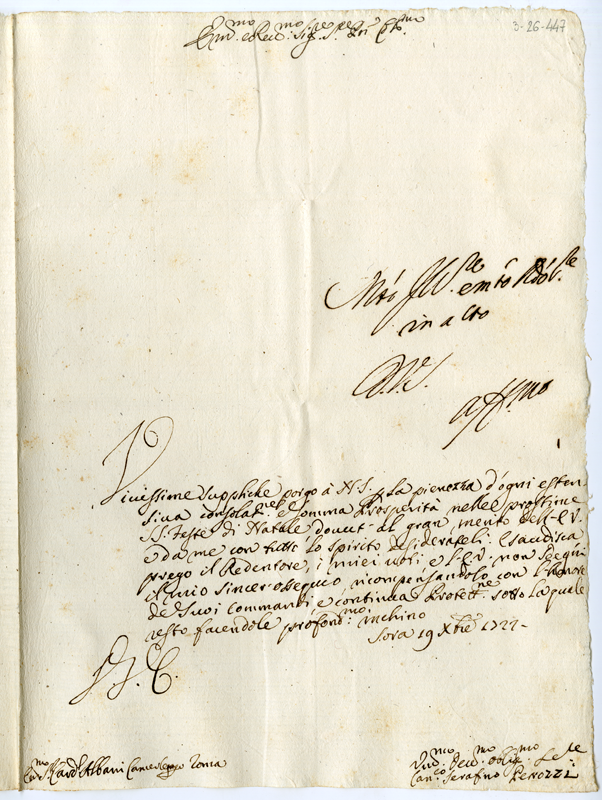 3-26-447
Em.mo e Rev.mo Sig.re Sig.re P.ron Col.mo
Mto Ill.re
in a cto
D.V.S.
aff.mo
Vivissime suppliche porgo à N.S. p la pienezza d'ogni esten
siva consolat.ne e somma prosperità nelle prossime
SS. Feste di Natale dovut al gran merito dell'E.V.
e da me con tutto lo spirito desiderateli. Esaudisca
prego il Redentore, i miei voti, e l'E.V. non sdegni
il mio sincer ossequio ricompensandolo con l'Honore
de Suoi Commandi, e continua Protett.ne sotto la quale
resto facendole profond.mo inchino
Sora 19 Xbre 1722
Em.mo Card.l Albani Camerlengo Roma
Um.mo Dev.mo Obblig.mo Se.re
Can.co Serafino Perozzi